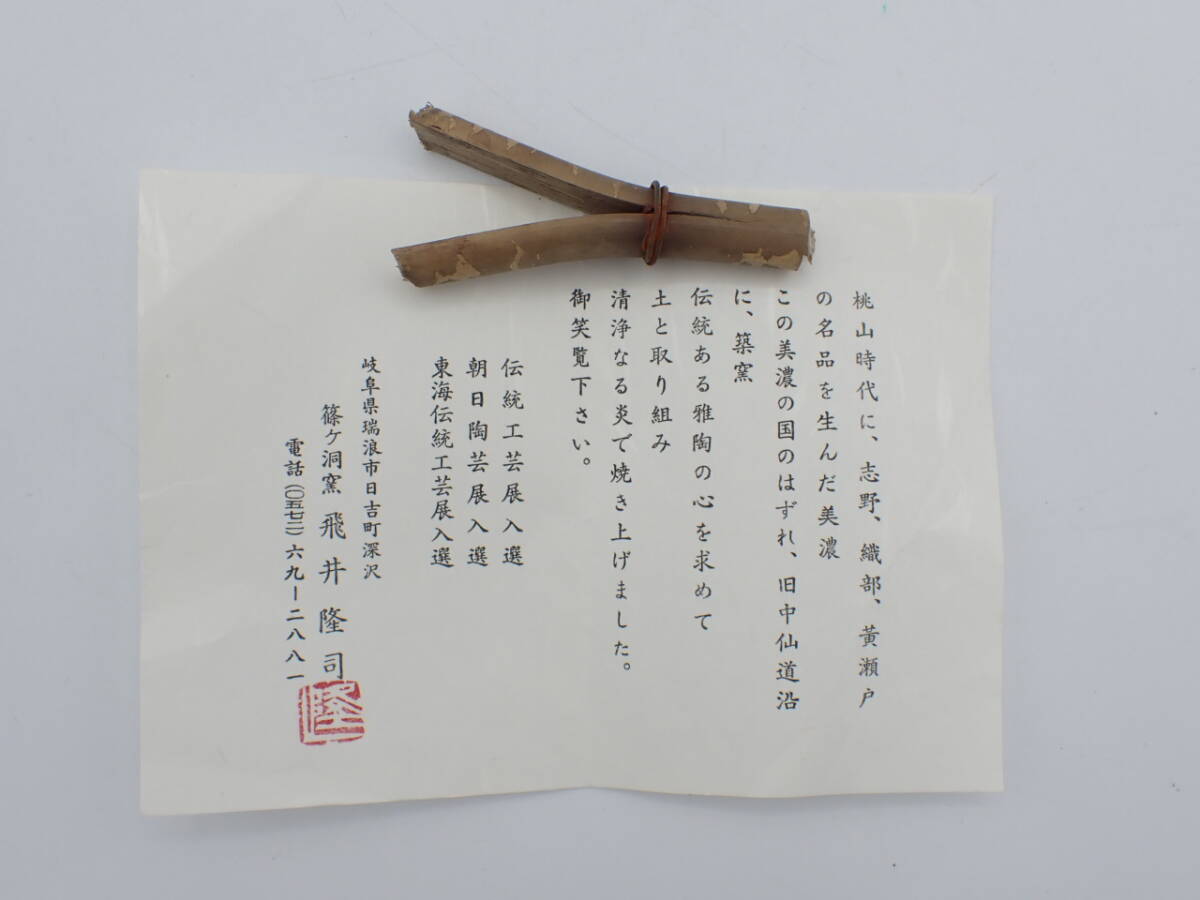 桃山時代に、志野、織部、黃瀬戸
の名品を生んだ美濃
この美濃の国のはずれ、旧中仙道沿
に、築窯
伝統ある雅陶の心を求めて
土と取り組み
清浄なる炎で焼き上げました。
御笑覧下さい。
伝統工芸展入選
朝日陶芸展入選
東海伝統工芸展入選
岐阜県瑞浪市日吉町深沢
篠ケ洞窯 飛井隆司
電話(〇五七二)六九ー二八八一
隆